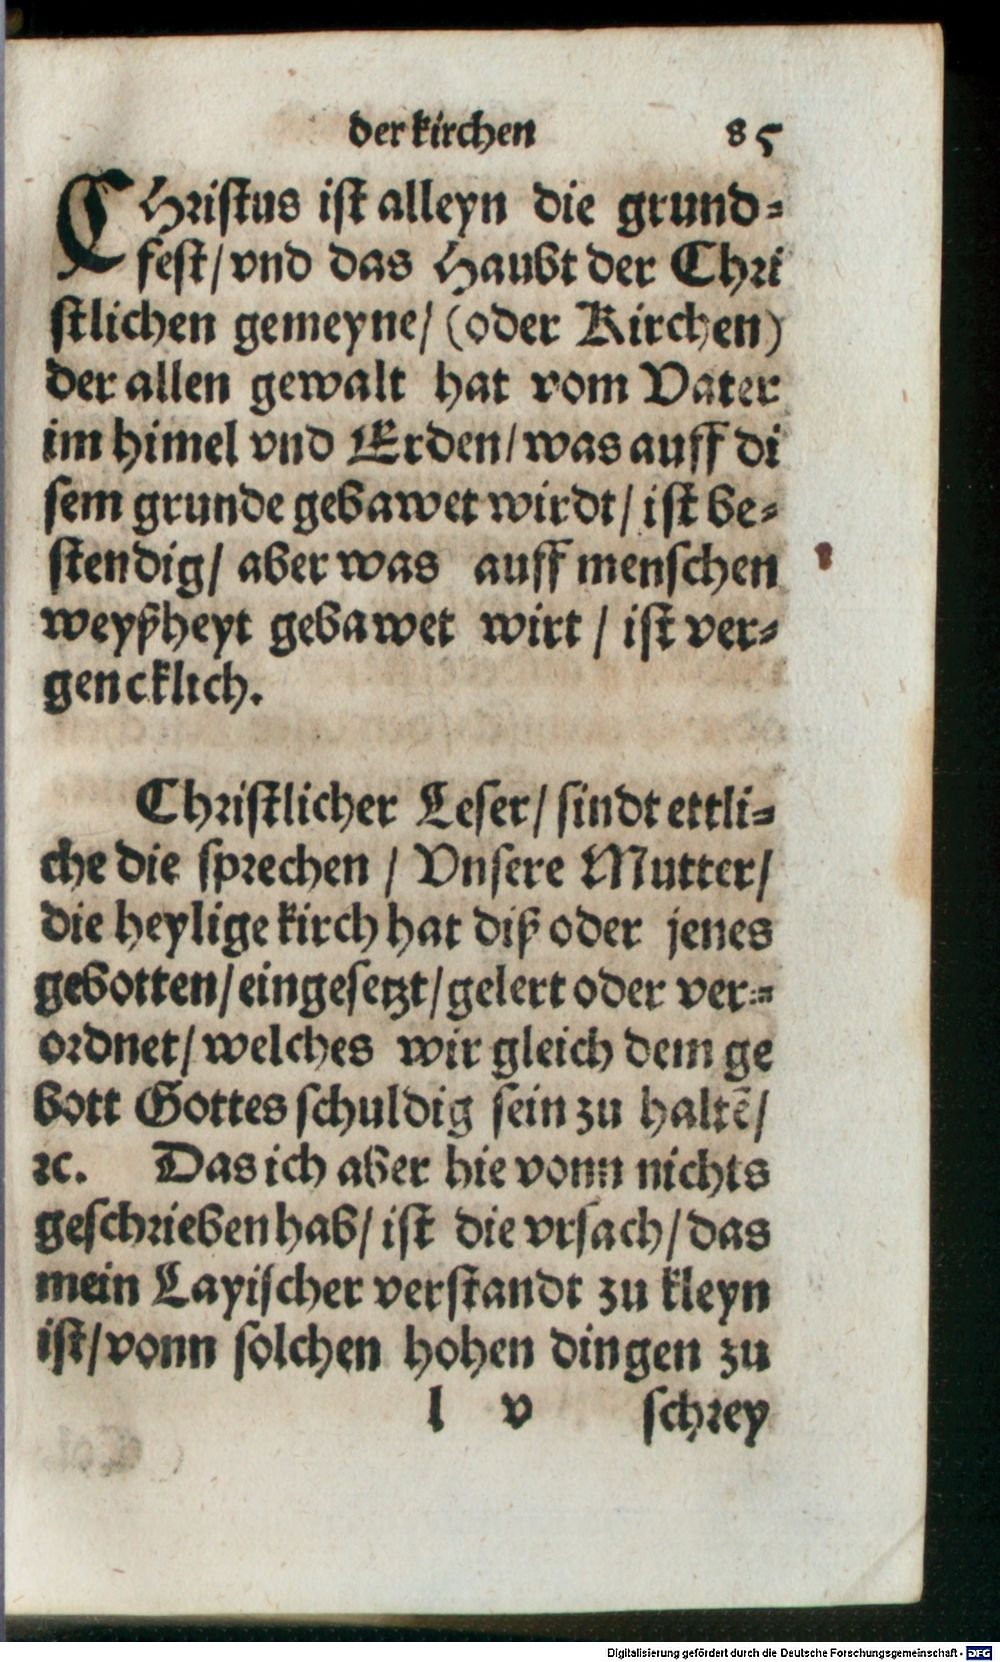 der kirchen 85
CHristus ist alleyn die grund=
fest/ vnd das Haubt der Chri
stlichen gemeyne/ (oder Kirchen)
der allen gewalt hat vom Vater
im himel vnd Erden/ was auff di
sem grunde gebawet wirdt/ ist be=
stendig/ aber was auff menschen
weyßheyt gebawet wirt / ist ver=
gencklich.
Christlicher Leser/ sindt ettli=
che die sprechen / Vnsere Mutter/
die heylige kirch hat diß oder jenes
gebotten/ eingesetzt/ gelert oder ver=
ordnet/ welches wir gleich dem ge
bott Gottes schuldig sein zu haltẽ/
ꝛc. Das ich aber hie vonn nichts
geschrieben hab/ ist die vrsach/ das
mein Layischer verstandt zu kleyn
ist/ vonn solchen hohen dingen zu
l v schrey
Digitalisierung gefördert durch die Deutsche Forschungsgemeinschaft - DFG